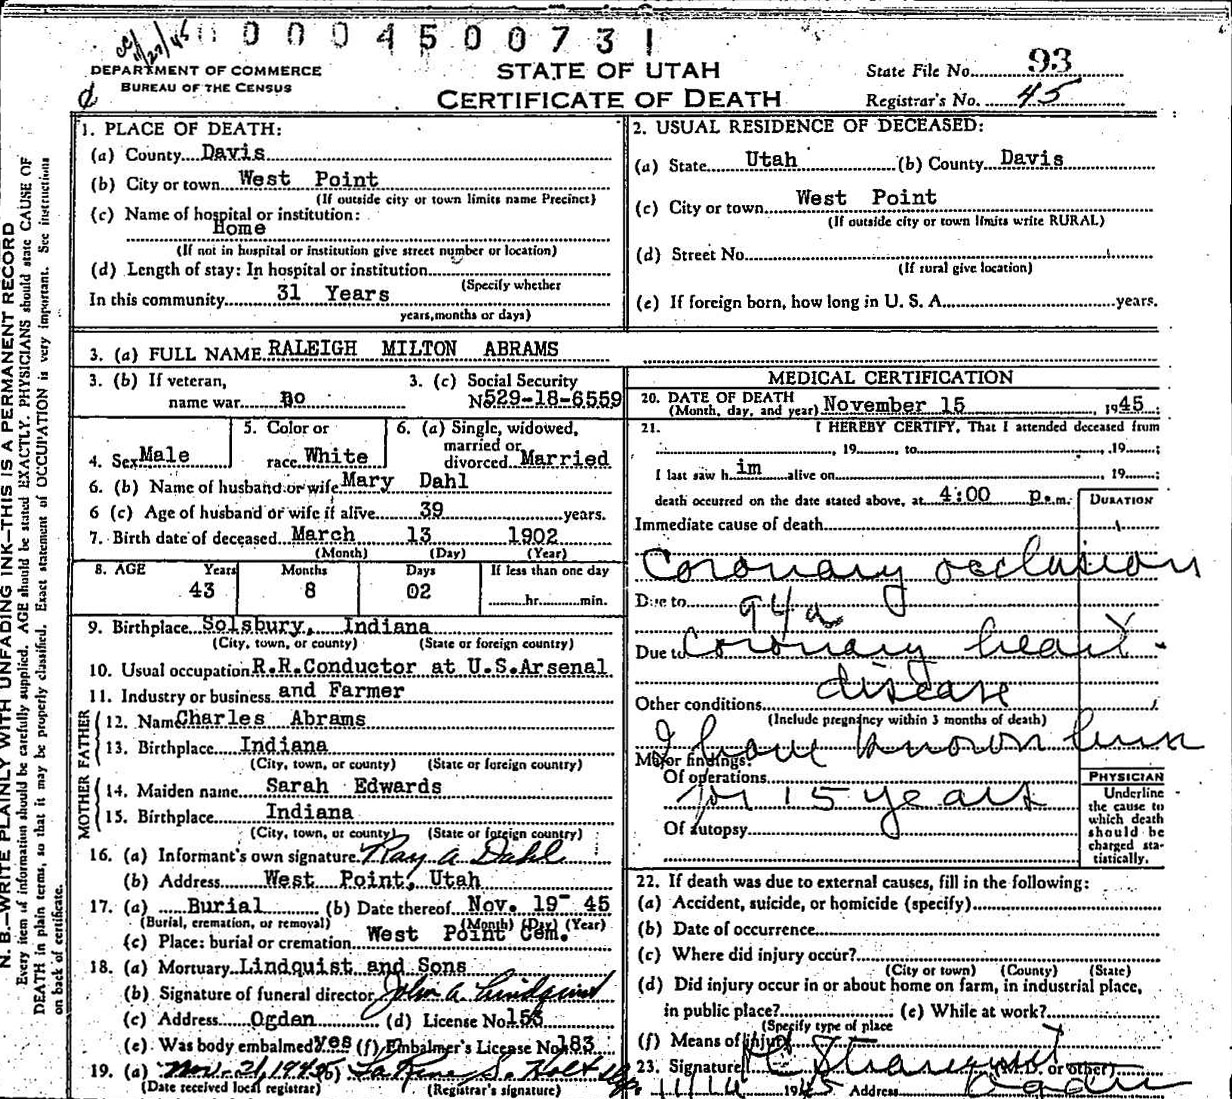 0 0 0 4 5 0 0 7 3 1
11/27/45
DEPARTMENT OF COMMERCE
BUREAU OF THE CENSUS
STATE OF UTAH
CERTIFICATE OF DEATH
State File No. 93
Registrar's No. 45
N. B.—WRITE PLAINLY WITH UNFADING INK—THIS IS A PERMANENT RECORD
Every item of information should be carefully supplied. AGE should be stated EXACTLY. PHYSICIANS should state CAUSE OF
DEATH in plain terms, so that it may be properly classified. Exact statement of OCCUPATION is very important. See instructions
on back of certificate.
1. PLACE OF DEATH:
(a) County Davis
(b) City or town West Point
(If outside city or town limits name Precinct)
(c) Name of hospital or institution:
Home
(If not in hospital or institution give street number or location)
(d) Length of stay: In hospital or institution
(Specify whether
In this community 31 Years
years, months or days)
2. USUAL RESIDENCE OF DECEASED:
(a) State Utah (b) County Davis
(c) City or town West Point
(If outside city or town limits write RURAL)
(d) Street No.
(If rural give location)
(e) If foreign born, how long in U. S. A. years.
3. (a) FULL NAME RALEIGH MILTON ABRAMS
3. (b) If veteran, name war no
3. (c) Social Security No 529-18-6559
4. Sex Male
5. Color or race White
6. (a) Single, widowed, married or divorced Married
6. (b) Name of husband or wife Mary Dahl
6 (c) Age of husband or wife if alive 39 years.
7. Birth date of deceased March 13 1902
(Month) (Day) (Year)
8. AGE Years Months Days If less than one day
43 8 02 hr. min.
9. Birthplace Solsbury, Indiana
(City, town, or county) (State or foreign country)
10. Usual occupation R.R.Conductor at U.S.Arsenal
11. Industry or business and Farmer
FATHER
12. Name Charles Abrams
13. Birthplace Indiana
(City, town, or county) (State or foreign country)
MOTHER
14. Maiden name Sarah Edwards
15. Birthplace Indiana
(City, town, or county) (State or foreign country)
16. (a) Informant's own signature Ray A Dahl
(b) Address West Point, Utah
17. (a) Burial (b) Date thereof Nov. 19- 45
(Burial, cremation, or removal) (Month) (Day) (Year)
(c) Place: burial or cremation West Point Cem.
18. (a) Mortuary Lindquist and Sons
(b) Signature of funeral director John A Lindquist
(c) Address Ogden (d) License No 153
(e) Was body embalmed yes (f) Embalmer's License No 183
19. (a) Nov. 21, 1945 (b) LaRene S. Holt
(Date received local registrar) (Registrar's signature)
MEDICAL CERTIFICATION
20. DATE OF DEATH
(Month, day, and year) November 15, 1945
21. I HEREBY CERTIFY, That I attended deceased from
, 19 , to , 19 ;
I last saw h im alive on , 19 ;
death occurred on the date stated above, at 4:00 p.m.
DURATION
Immediate cause of death
Coronary occlusion
Due to 94a
Due to Coronary heart
disease
Other conditions
(Include pregnancy within 3 months of death)
I have known him
Major findings:
Of operations
for 15 years
Of autopsy
PHYSICIAN
Underline
the cause to
which death
should be
charged sta-
tistically.
22. If death was due to external causes, fill in the following:
(a) Accident, suicide, or homicide (specify)
(b) Date of occurrence
(c) Where did injury occur?
(City or town) (County) (State)
(d) Did injury occur in or about home on farm, in industrial place,
in public place? (e) While at work?
(Specify type of place
(f) Means of injury
23. Signature (M.D. or other)
1945 Address Ogden